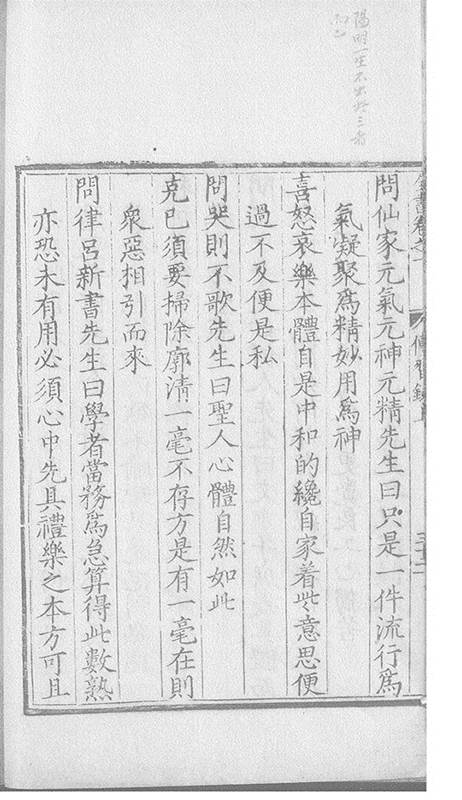 陽明一生不出於三者
而已
全書卷之一
傳習錄上
三十二
問仙家元氣元神元精先生曰只是一件流行爲
氣凝聚爲精妙用爲神
喜怒哀樂本體自是中和的纔自家着些意思便
過不及便是私
問哭則不歌先生曰聖人心體自然如此
克己須要掃除廓清一毫不存方是有一毫在則
衆惡相引而來
問律呂新書先生曰學者當務爲急算得此數熟
亦恐未有用必須心中先具禮樂之本方可且